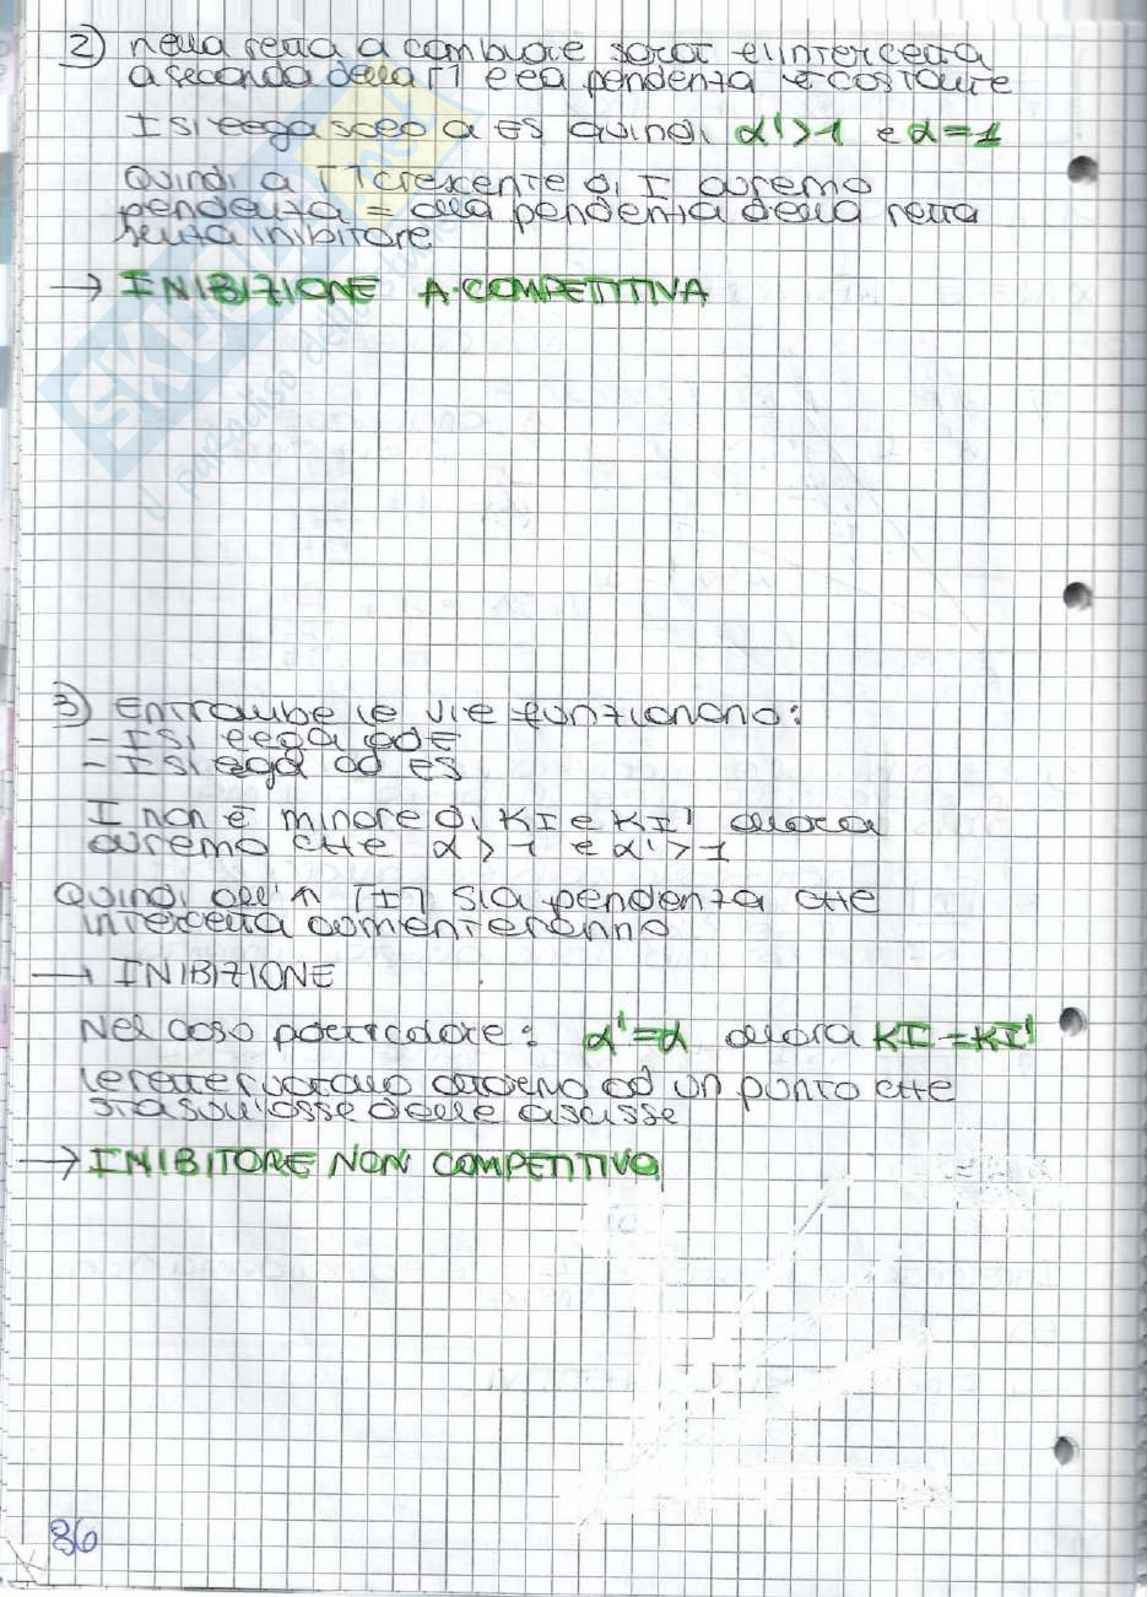 2) nella retta a cambiare sarà l'intercetta
a seconda della [I] e la pendenza è costante
I si lega solo a ES quindi α'>1 e α=1
Quindi a [] crescente di I avremo
pendenza = alla pendenza della retta
senza inibitore
→ INIBIZIONE A-COMPETITIVA
SKUOLA.net
il paradiso dello
3) Entrambe le vie funzionano:
- I si lega ad E
- I si lega ad ES
I non è minore di KI e KI' allora
avremo che α>1 e α'>1
Quindi all'↑ [I] sia pendenza che
intercetta aumenteranno
→ INIBIZIONE
Nel caso particolare: α'=α allora KI=KI'
le rette ruotano attorno ad un punto che
sta sull'asse delle ascisse
→ INIBITORE NON COMPETITIVO
36